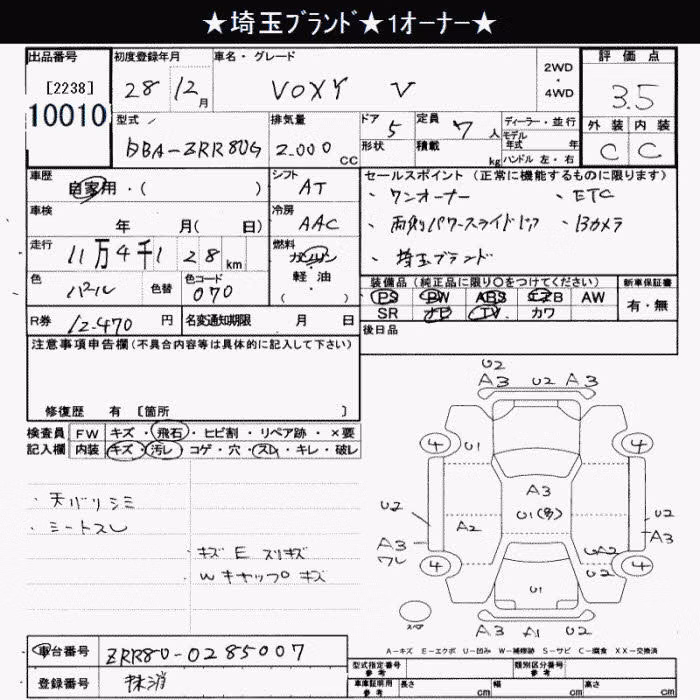 ★埼玉ﾌﾞﾗﾝﾄﾞ★1オーナー★
出品番号 初度登録年月 車名・グレード 評価点
[2238] 28 12月 VOXY V 2WD・4WD 3.5
10010
型式 排気量 ドア 定員 ディーラー・並行
DBA-ZRR80G 2.000 CC 5 7人 モデル年式 年
形状 積載 kg ハンドル 左・右
外装 内装
C C
車歴 自家用・( ) シフト AT
セールスポイント(正常に機能するものに限ります)
・ワンオーナー ・ETC
・両側パワースライドドア ・Bカメラ
・埼玉ブランド
車検 年 月(日) 冷房 AAC
走行 11万4千128km 燃料 ガソリン・軽油・( )
色 パール 色替 色コード 070
装備品(純品に限り〇をつけてください) 新車保証書
PS PW ABS エアB AW 有・無
SR ナビ TV カワ
R券 12.470円 名変通知期限 月 日
後日品
注意事項申告欄(不具合内容等は具体的に記入して下さい)
修復歴 有 [箇所 ]
検査員 FW キズ・飛石・ヒビ割・リペア跡・×要
記入欄 内装 キズ・汚レ・コゲ・穴・スレ・キレ・破レ
・天バリシミ
・シートスレ
・キズ E スリキズ
Wキャップ キズ
U2
A3 U2 A3
4 U1 4
A3
U2 U1(多) U2
A2 A3
A3 UA2
ワレ U2
4 4
U1
スペア
A3 A1 U2
A3
A-キズ E-エクボ U-凹み W-補修跡 S-サビ C-腐食 XX-交換済
車台番号 ZRR80-0285007
登録番号 抹消
型式指定番号 参考 類別区分番号 参考
車庫証明用 参考 長さ cm 幅 cm 高さ cm